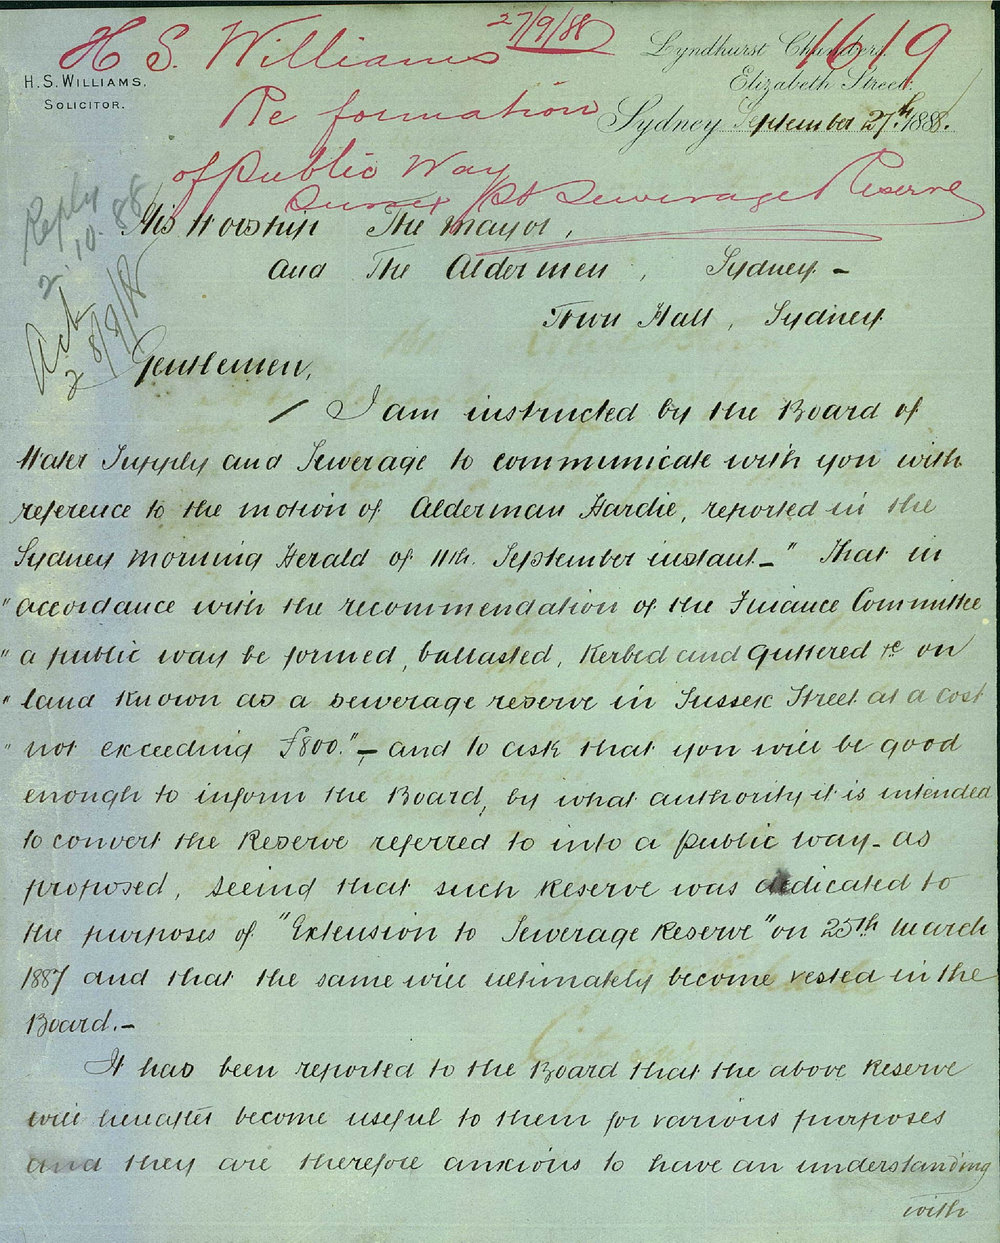 27/9/88
H S. Williams
1619
Lyndhurst Chambers,
Elizabeth Street,
H.S. WILLIAMS.
SOLICITOR.
Re formation
Sydney September 27th 1888.
of Public Way
Sussex St Sewerage Reserve
Reply
2.10.88
Ack
28/9/88
His Worship The Mayor,
and The Aldermen, Sydney -
Town Hall, Sydney
Gentlemen,
I am instructed by the Board of
Water Supply and Sewerage to communicate with you with
reference to the motion of Alderman Hardie, reported in the
Sydney Morning Herald of 11th. September instant - " That in
" accordance with the recommendation of the Finance Committee
" a public way be formed, ballasted, Kerbed and Guttered &c on
" land known as a sewerage reserve in Sussex Street at a cost
" not exceeding £800." - and to ask that you will be good
enough to inform the Board, by what authority it is intended
to convert the Reserve referred to into a public way - as
proposed, seeing that such Reserve was dedicated to
the purposes of "Extension to Sewerage Reserve" on 25th March
1887 and that the same will ultimately become vested in the
Board. -
It has been reported to the Board that the above Reserve
will hereafter become useful to them for various purposes
and they are therefore anxious to have an understanding
with